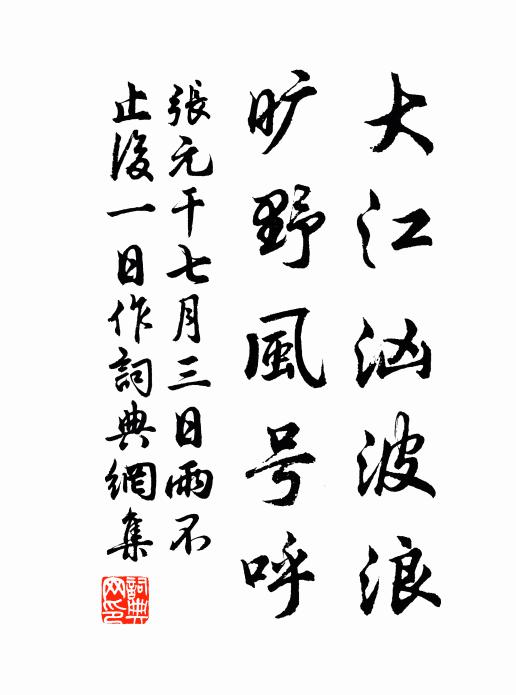 大江汹波浪
旷野風号呼
張元干七月三日雨不
止後一日作詞典網集
詞典网印